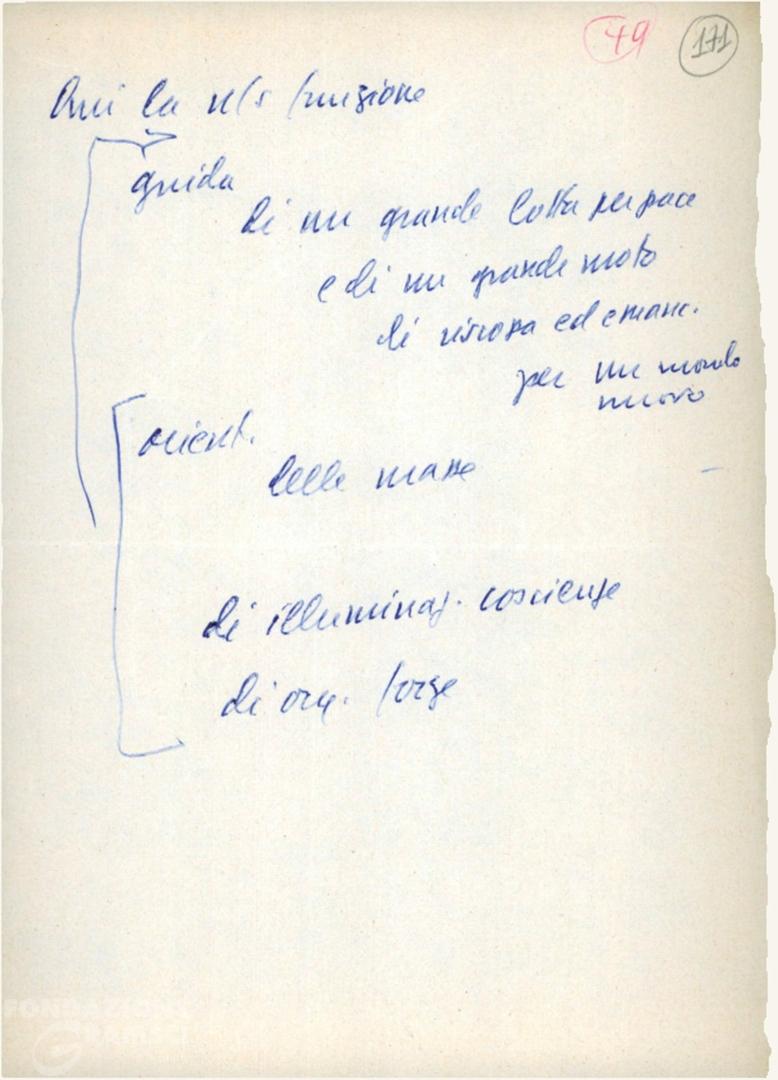 49 171
Qui la n/s funzione
guida
di un grande lotta per pace
e di un grande moto
di riscossa ed emanc.
per un mondo
nuovo
orient.
delle masse
di illuminaz. coscienze
di org. forze
FONDAZIONE
GRAMSCI